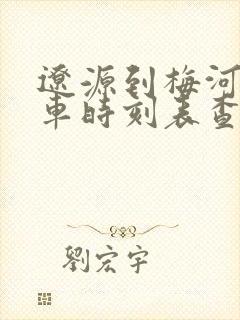 遼源到梅河
車時刻表查
劉宏宇